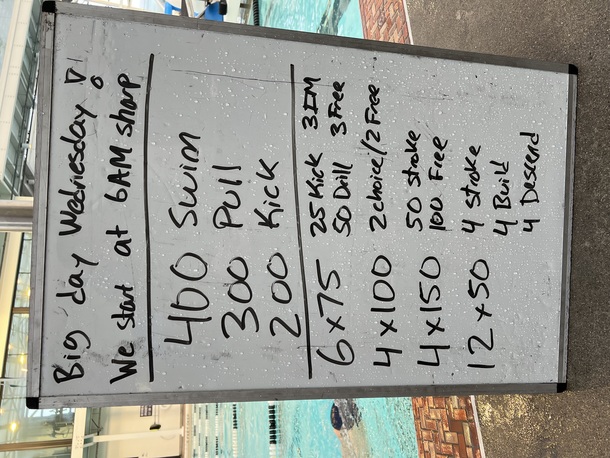 Big day Wednesday!
We start at 6AM sharp
400 Swim
300 Pull
200 Kick
6x75 25 Kick 3 IM
50 Drill 3 Free
4x100 2 choice/2 Free
4x150 50 stroke
100 Free
12x50 4 stroke
4 Build
4 Descend